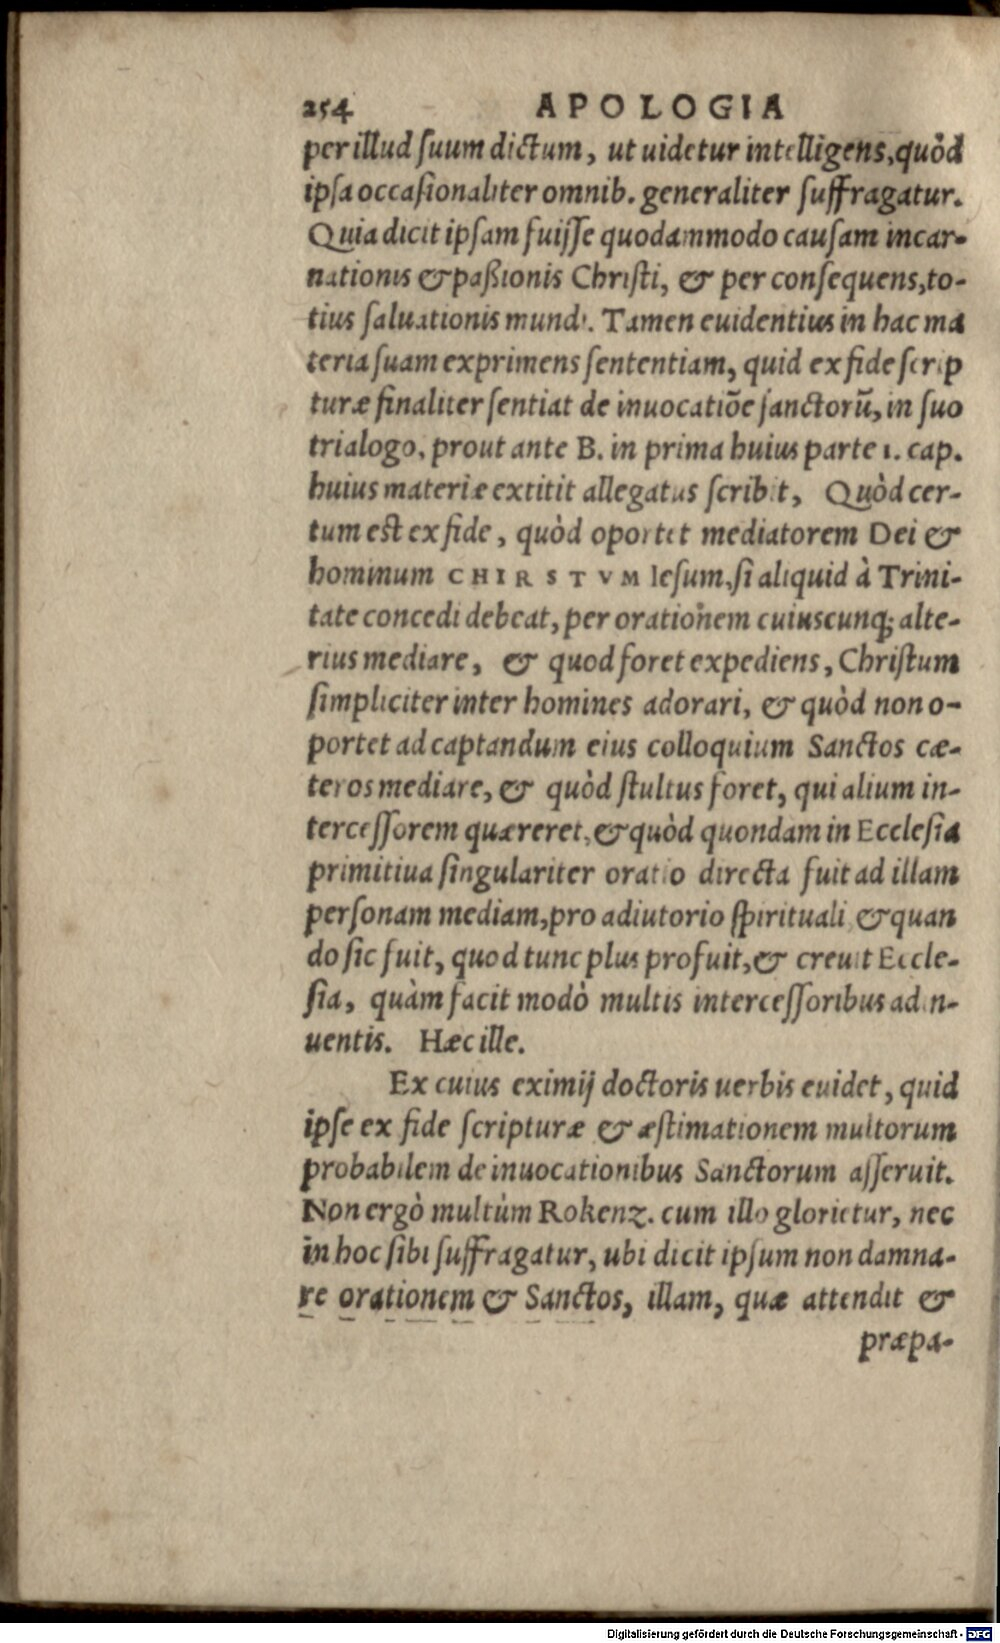 254 APOLOGIA
per illud suum dictum, ut uidetur intelligens, quòd
ipsa occasionaliter omnib. generaliter suffragatur.
Quia dicit ipsam fuisse quodammodo causam incar-
nationis & passionis Christi, & per consequens, to-
tius saluationis mundi. Tamen euidentius in hac ma
teria suam exprimens sententiam, quid ex fide scrip
turæ finaliter sentiat de inuocatiõe sanctorũ, in suo
trialogo, prout ante B. in prima huius parte 1. cap.
huius materiæ extitit allegatus scribit, Quòd cer-
tum est ex fide, quòd oportet mediatorem Dei &
hominum CHIRSTVM Iesum, si aliquid à Trini-
tate concedi debeat, per orationem cuiuscunq; alte-
rius mediare, & quod foret expediens, Christum
simpliciter inter homines adorari, & quòd non o-
portet ad captandum eius colloquium Sanctos cæ-
teros mediare, & quòd stultus foret, qui alium in-
tercessorem quæreret, & quòd quondam in Ecclesia
primitiua singulariter oratio directa fuit ad illam
personam mediam, pro adiutorio spirituali, & quan
do sic fuit, quod tunc plus profuit, & creuit Eccle-
sia, quàm facit modò multis intercessoribus adin-
uentis. Hæc ille.
Ex cuius eximij doctoris uerbis euidet, quid
ipse ex fide scripturæ & æstimationem multorum
probabilem de inuocationibus Sanctorum asseruit.
Non ergò multùm Rokenz. cum illo glorietur, nec
in hoc sibi suffragatur, ubi dicit ipsum non damna-
re orationem & Sanctos, illam, quæ attendit &
præpa-
Digitalisierung gefördert durch die Deutsche Forschungsgemeinschaft - DFG